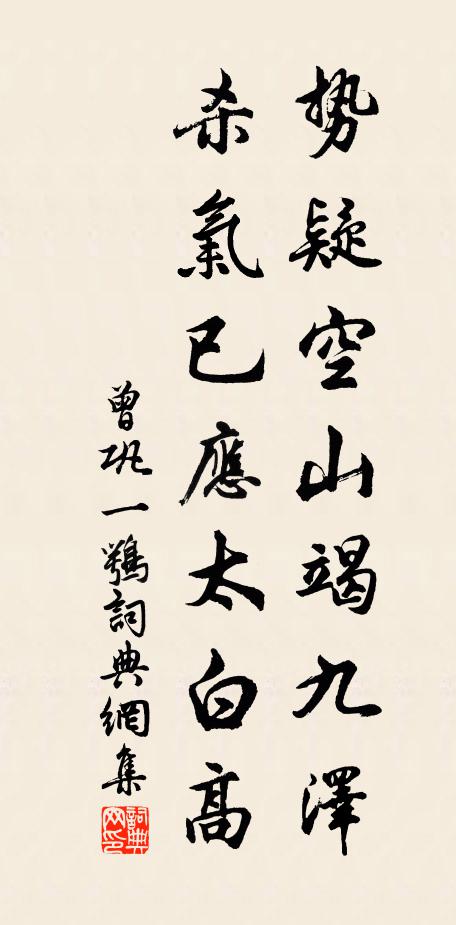 势疑空山竭九澤
杀氣已應太白高
曾巩一鶚詞典網集
詞典网印